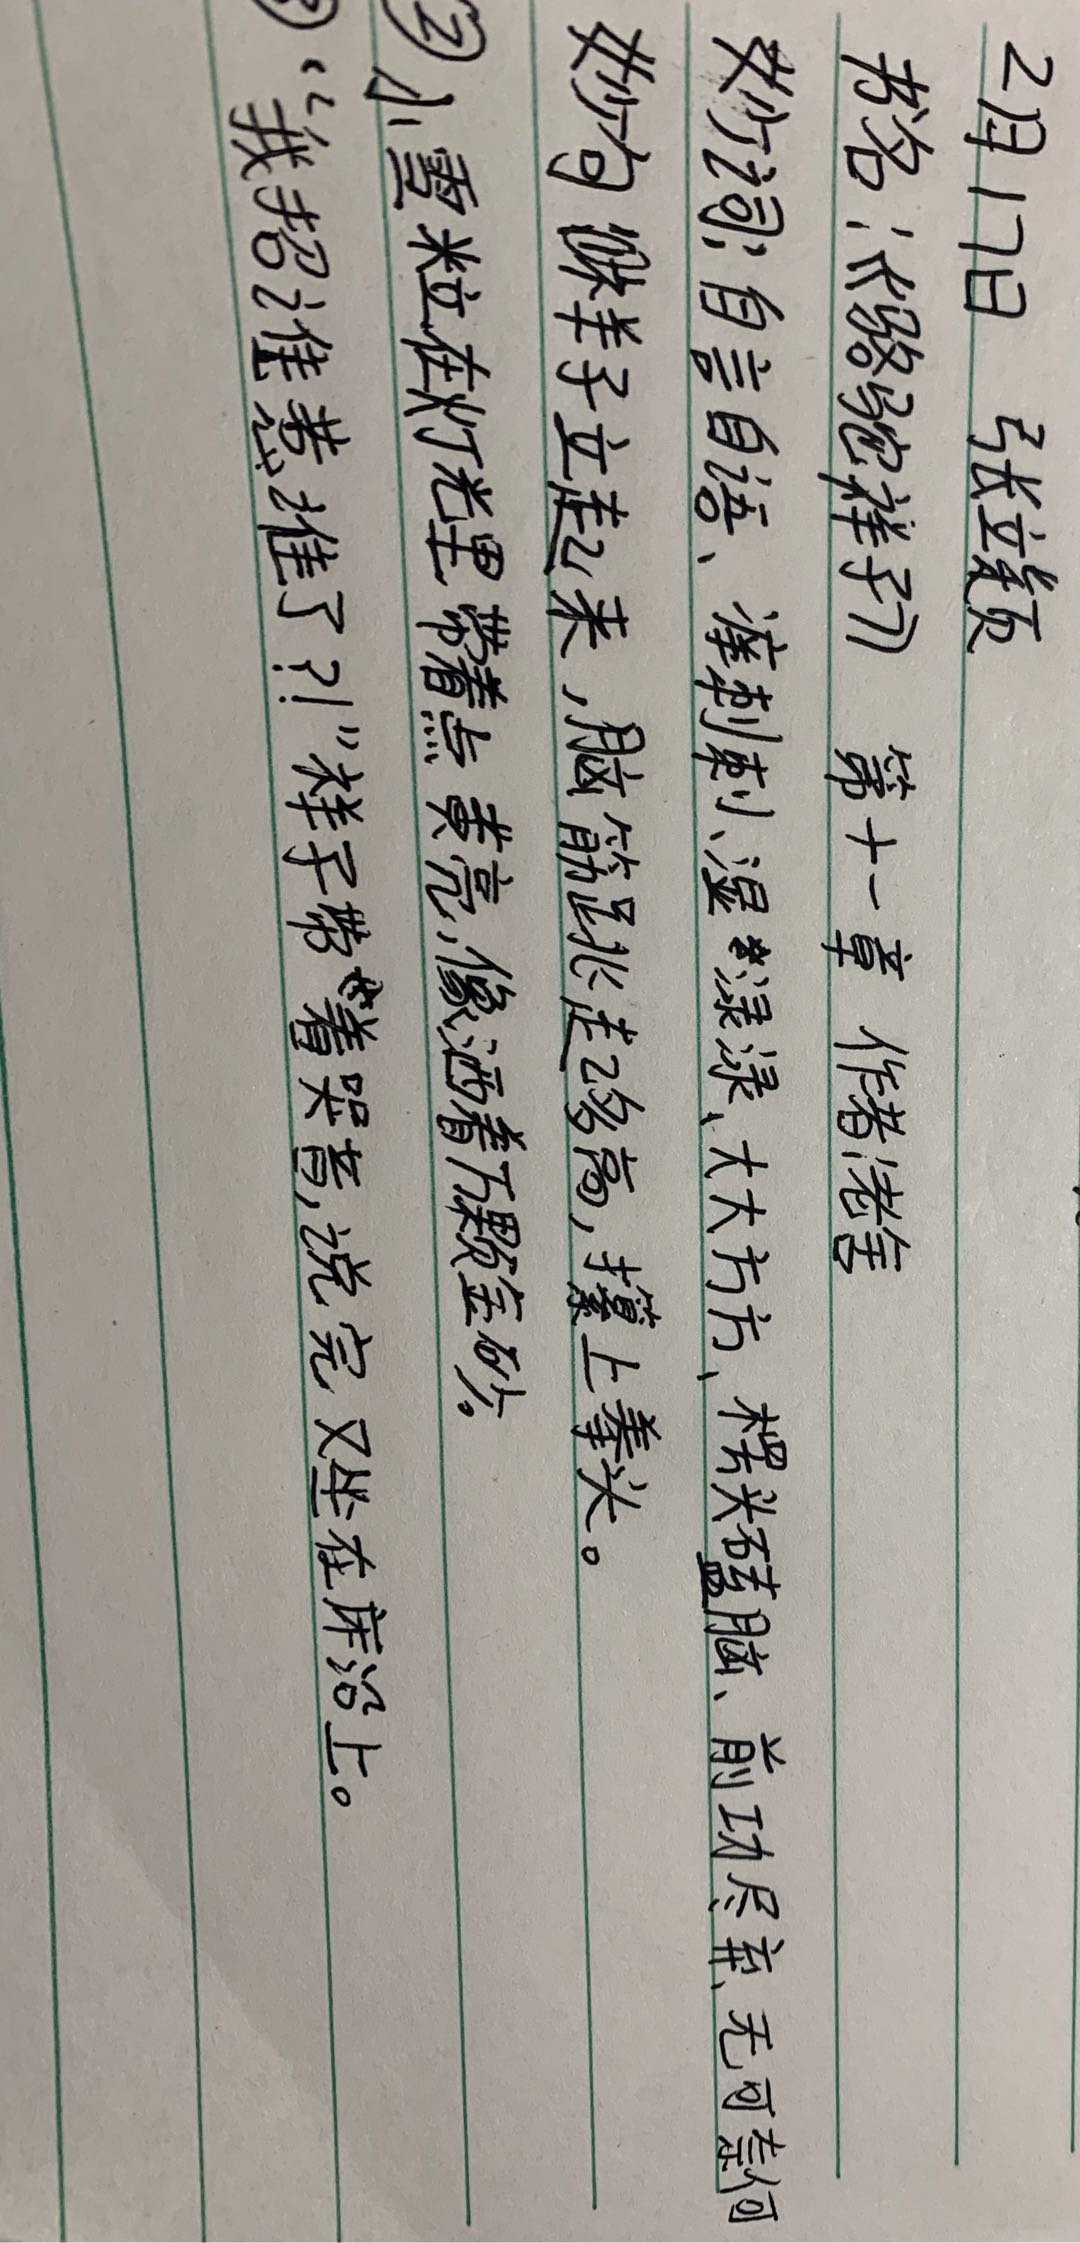 2月17日 张立
书名:《骆驼祥子》 第十一章 作者:老舍
妙词:自言自语、瘆刺刺、湿渌渌、大大方方、楞头磕脑、前功尽弃、无可奈何
妙句 ①祥子立起来,脑筋跳起多高,攥上拳头。
② 小雪粒在灯光里带着点黄亮,像洒着万颗金砂。
③ “我招谁惹谁了?!”祥子带着哭音,说完又坐在床沿上。